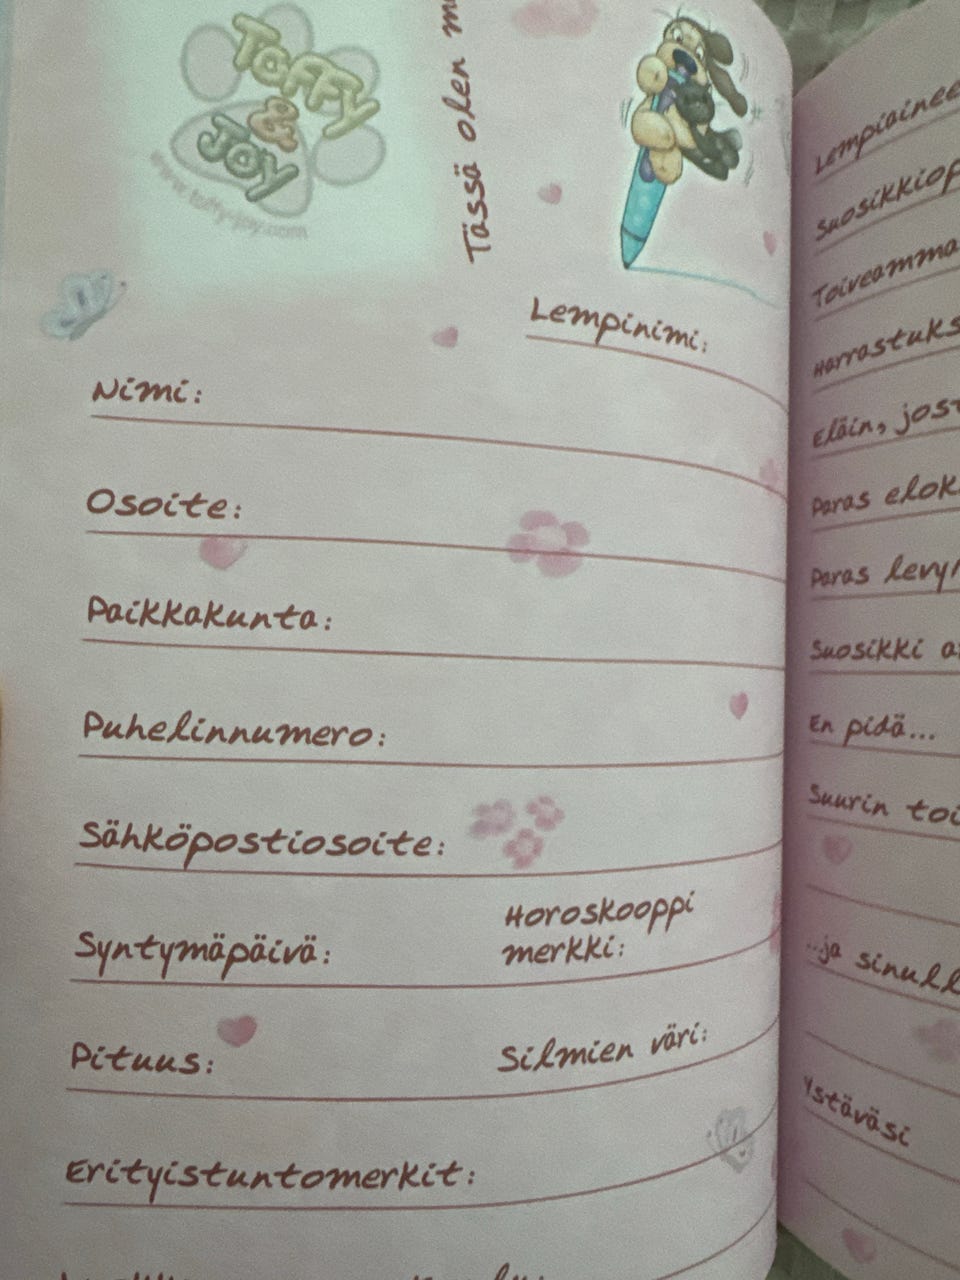 Toffy
&
Joy
www.toffy-joy.com
Tässä olen
Lempinimi:
Nimi:
Osoite:
Paikkakunta:
Puhelinnumero:
Sähköpostiosoite:
Syntymäpäivä:
Horoskooppi
merkki:
Pituus:
Silmien väri:
Erityistuntomerkit:
Lempiainee
Suosikkiop
Toiveamma
Harrastuks
Eläin, jos
Paras elok
Paras levy
Suosikki
En pidä...
Suurin toi
...ja sinull
Ystäväsi